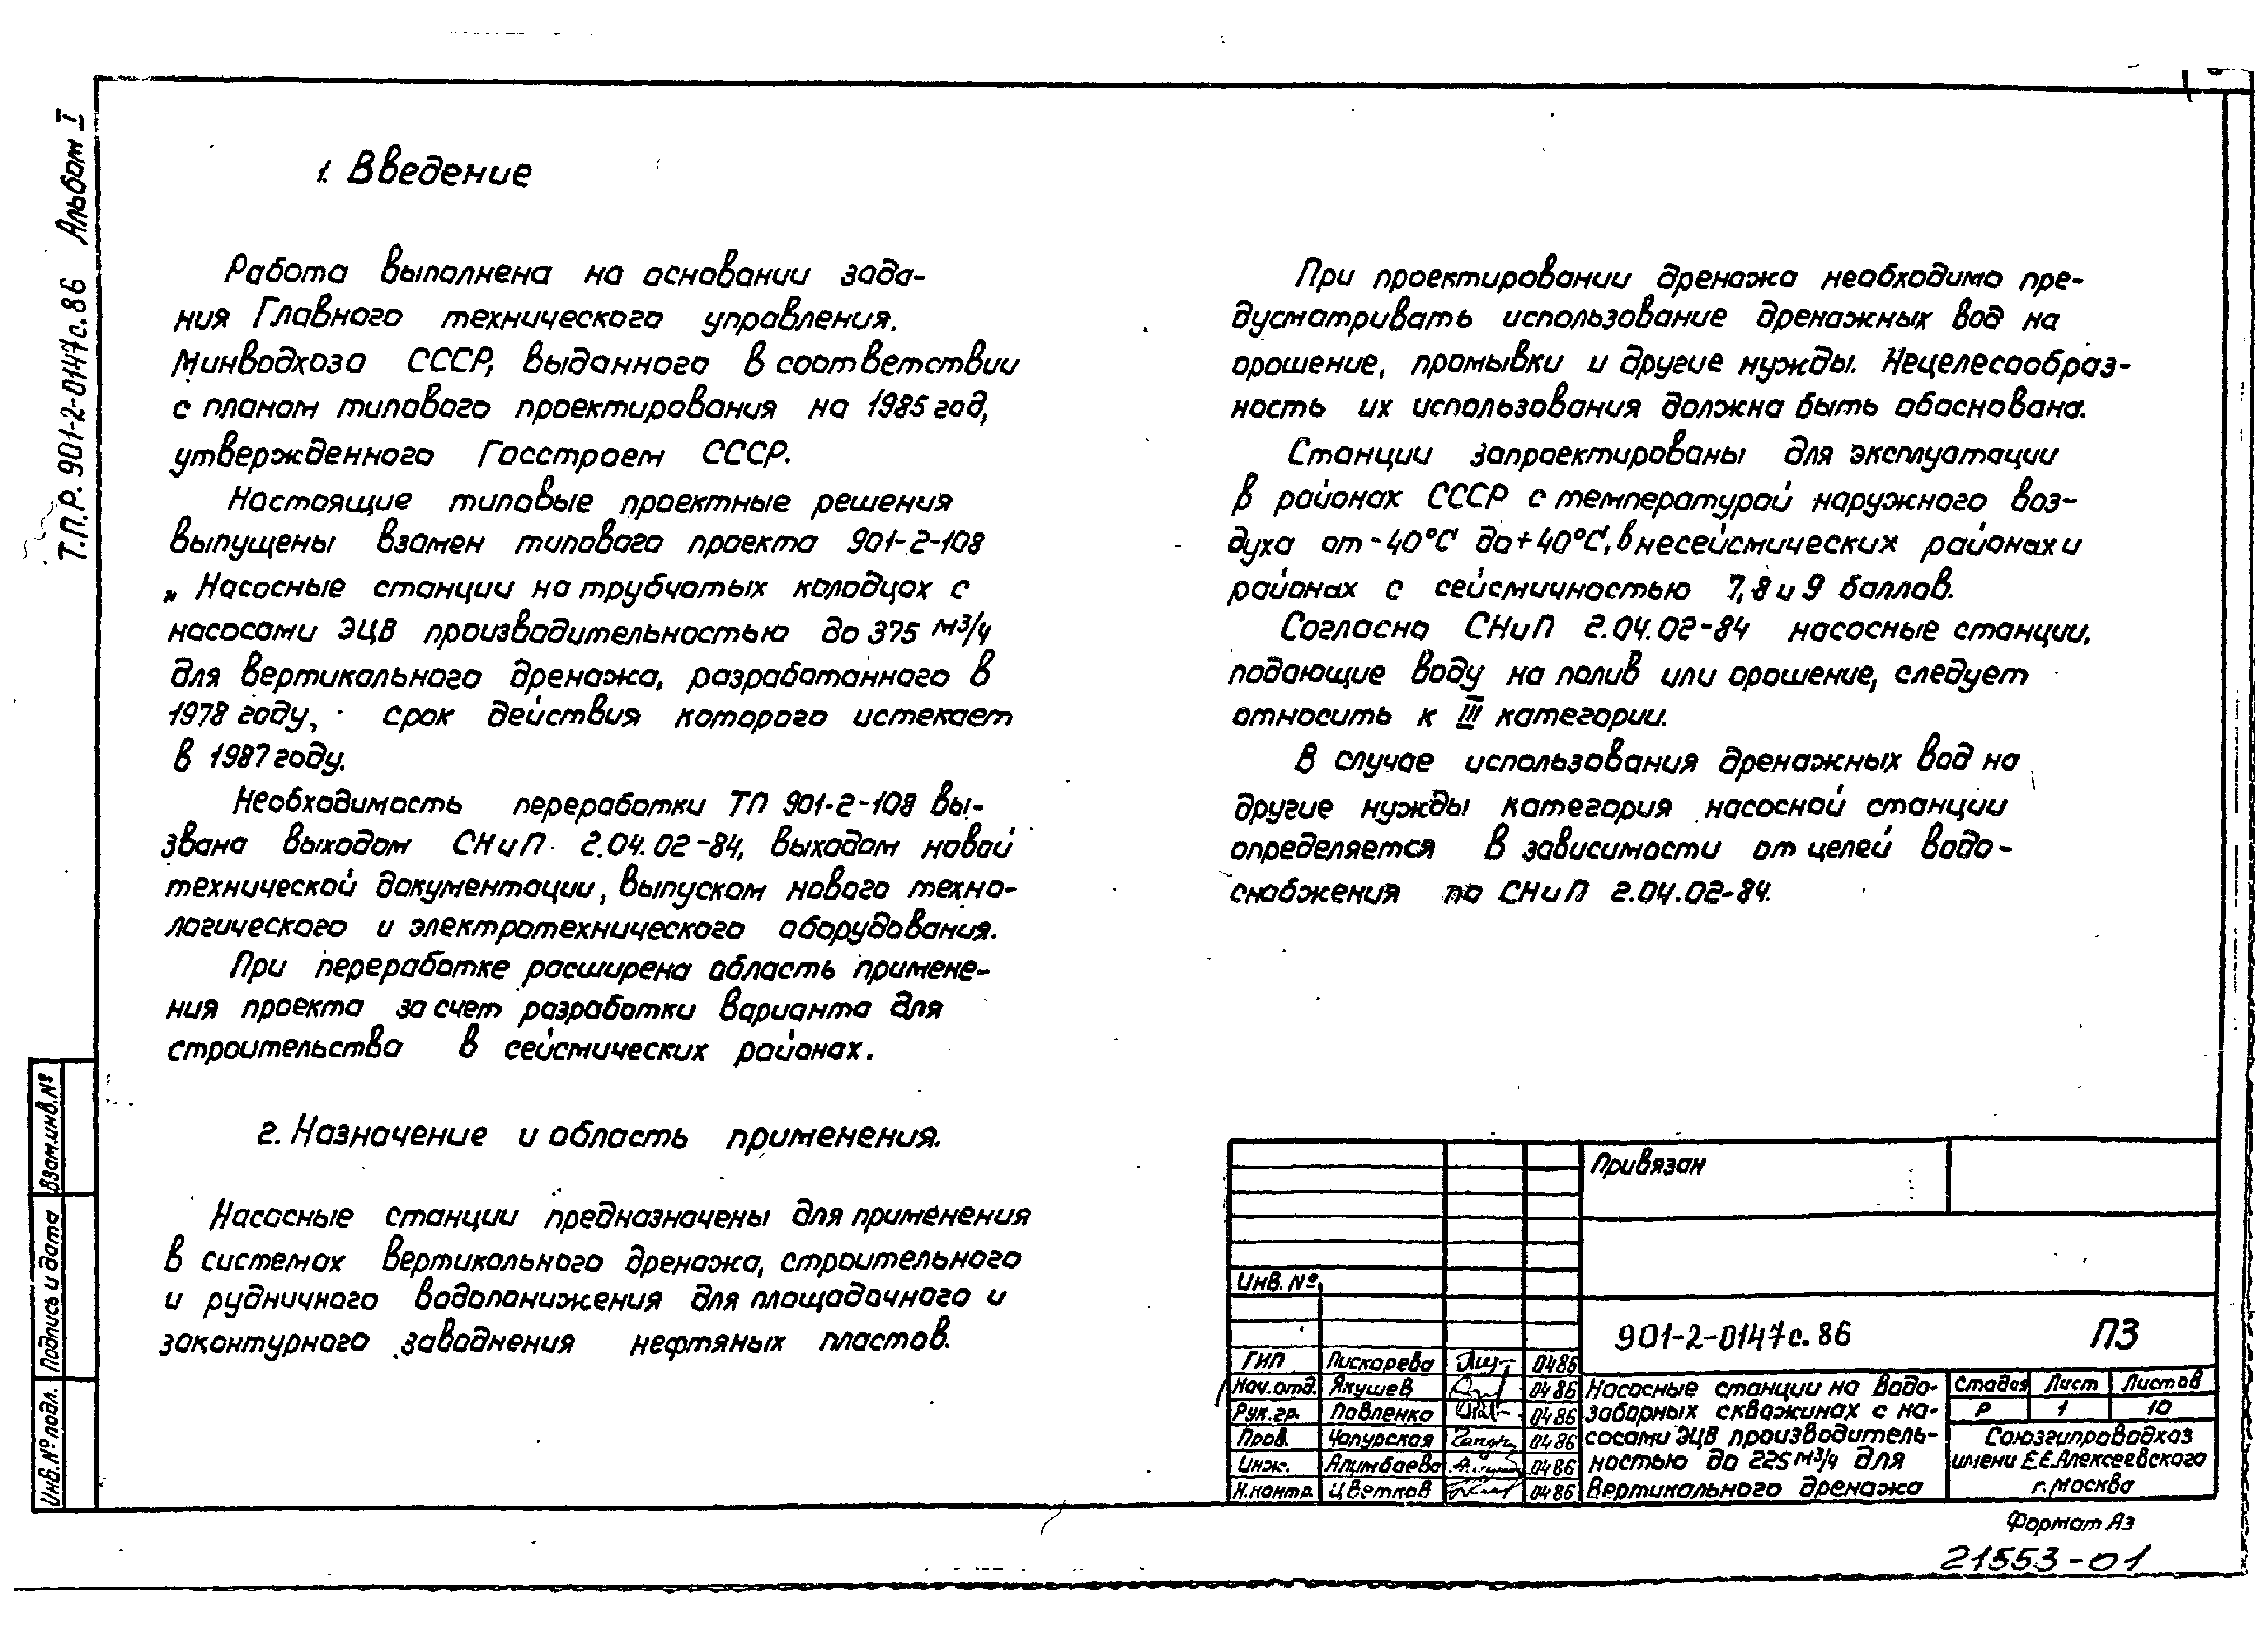 Т.П.Р. 901-2-0147с.86 Альбом I
1. Введение
Работа выполнена на основании зада-
ния Главного технического управления.
Минводхоза СССР, выданного в соответствии
с планом типового проектирования на 1985 год,
утвержденного Госстроем СССР.
Настоящие типовые проектные решения
выпущены взамен типового проекта 901-2-108
„ Насосные станции на трубчатых колодцах с
насосами ЭЦВ производительностью до 375 м3/ч
для вертикального дренажа, разработанного в
1978 году, срок действия которого истекает
в 1987 году.
Необходимость переработки ТП 901-2-108 вы-
звана выходом СНиП 2.04.02-84, выходом новой
технической документации, выпуском нового техно-
логического и электротехнического оборудования.
При переработке расширена область примене-
ния проекта за счет разработки варианта для
строительства в сейсмических районах.
2. Назначение и область применения.
Насосные станции предназначены для применения
в системах вертикального дренажа, строительного
и рудничного водопонижения для площадочного и
законтурного заводнения нефтяных пластов.
При проектировании дренажа необходимо пре-
дусматривать использование дренажных вод на
орошение, промывки и другие нужды. Нецелесообраз-
ность их использования должна быть обоснована.
Станции запроектированы для эксплуатации
в районах СССР с температурой наружного воз-
духа от -40°С до +40°С, в несейсмических районах и
районах с сейсмичностью 7, 8 и 9 баллов.
Согласно СНиП 2.04.02-84 насосные станции,
подающие воду на полив или орошение, следует
относить к III категории.
В случае использования дренажных вод на
другие нужды категория насосной станции
определяется в зависимости от целей водо-
снабжения по СНиП 2.04.02-84.
Взам.инв.№
Подпись и дата
Инв.№ подл.
Привязан
Инв.№
901-2-0147с.86 ПЗ
ГИП Пискарева 0486
Нач.отд. Якушев 0486
Рук.гр. Павленко 0486
Пров. Чапурская 0486
Инж. Алимбаева 0486
Н.контр. Цветков 0486
Насосные станции на водо-
заборных скважинах с на-
сосами ЭЦВ производитель-
ностью до 225 м3/ч для
вертикального дренажа
Стадия Лист Листов
Р 1 10
Союзгипроводхоз
имени Е.Е.Алексеевского
г.Москва
Формат А3
21553-01